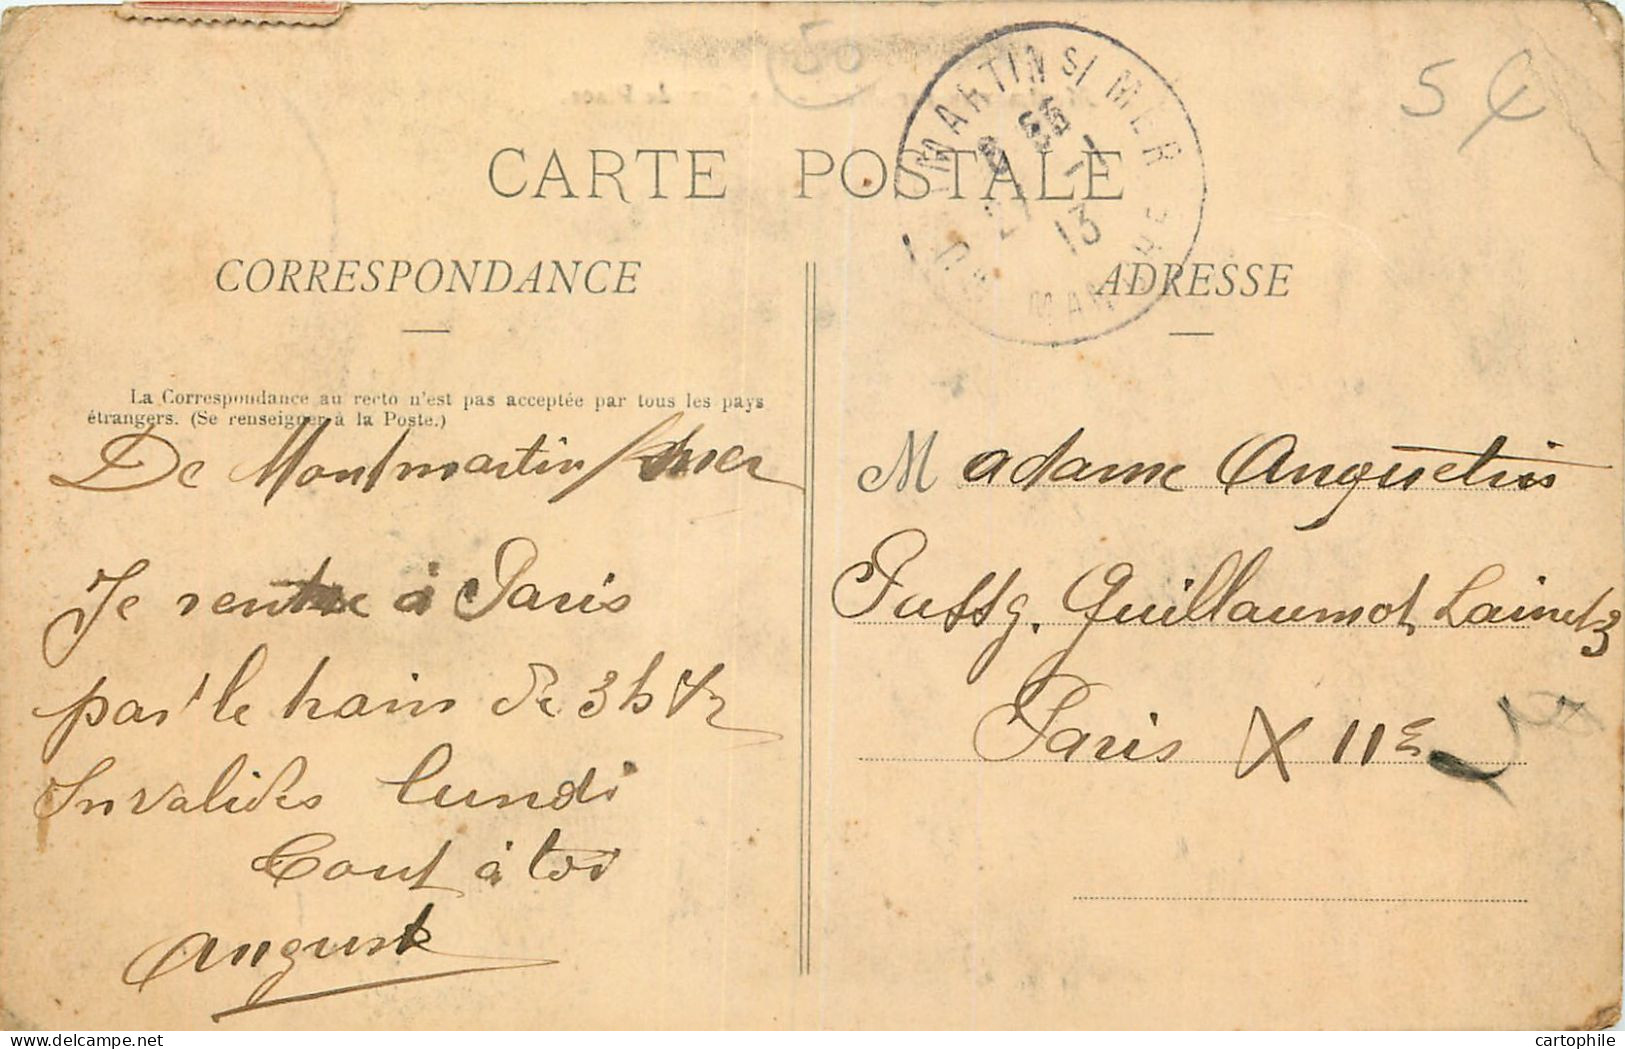 50
5 €
MARTIN S/ MER
8 55
27 -1
13
MANCHE
CARTE POSTALE
CORRESPONDANCE
ADRESSE
La Correspondance au recto n'est pas acceptée par tous les pays
étrangers. (Se renseigner à la Poste.)
De Montmartin / mer
Je rentre à Paris
par le train de 3h 1/2
Invalides lundi
Tout à toi
Auguste
Madame Anquetin
Guillaumot Lainé 3
Paris X 11e
cartophile.com